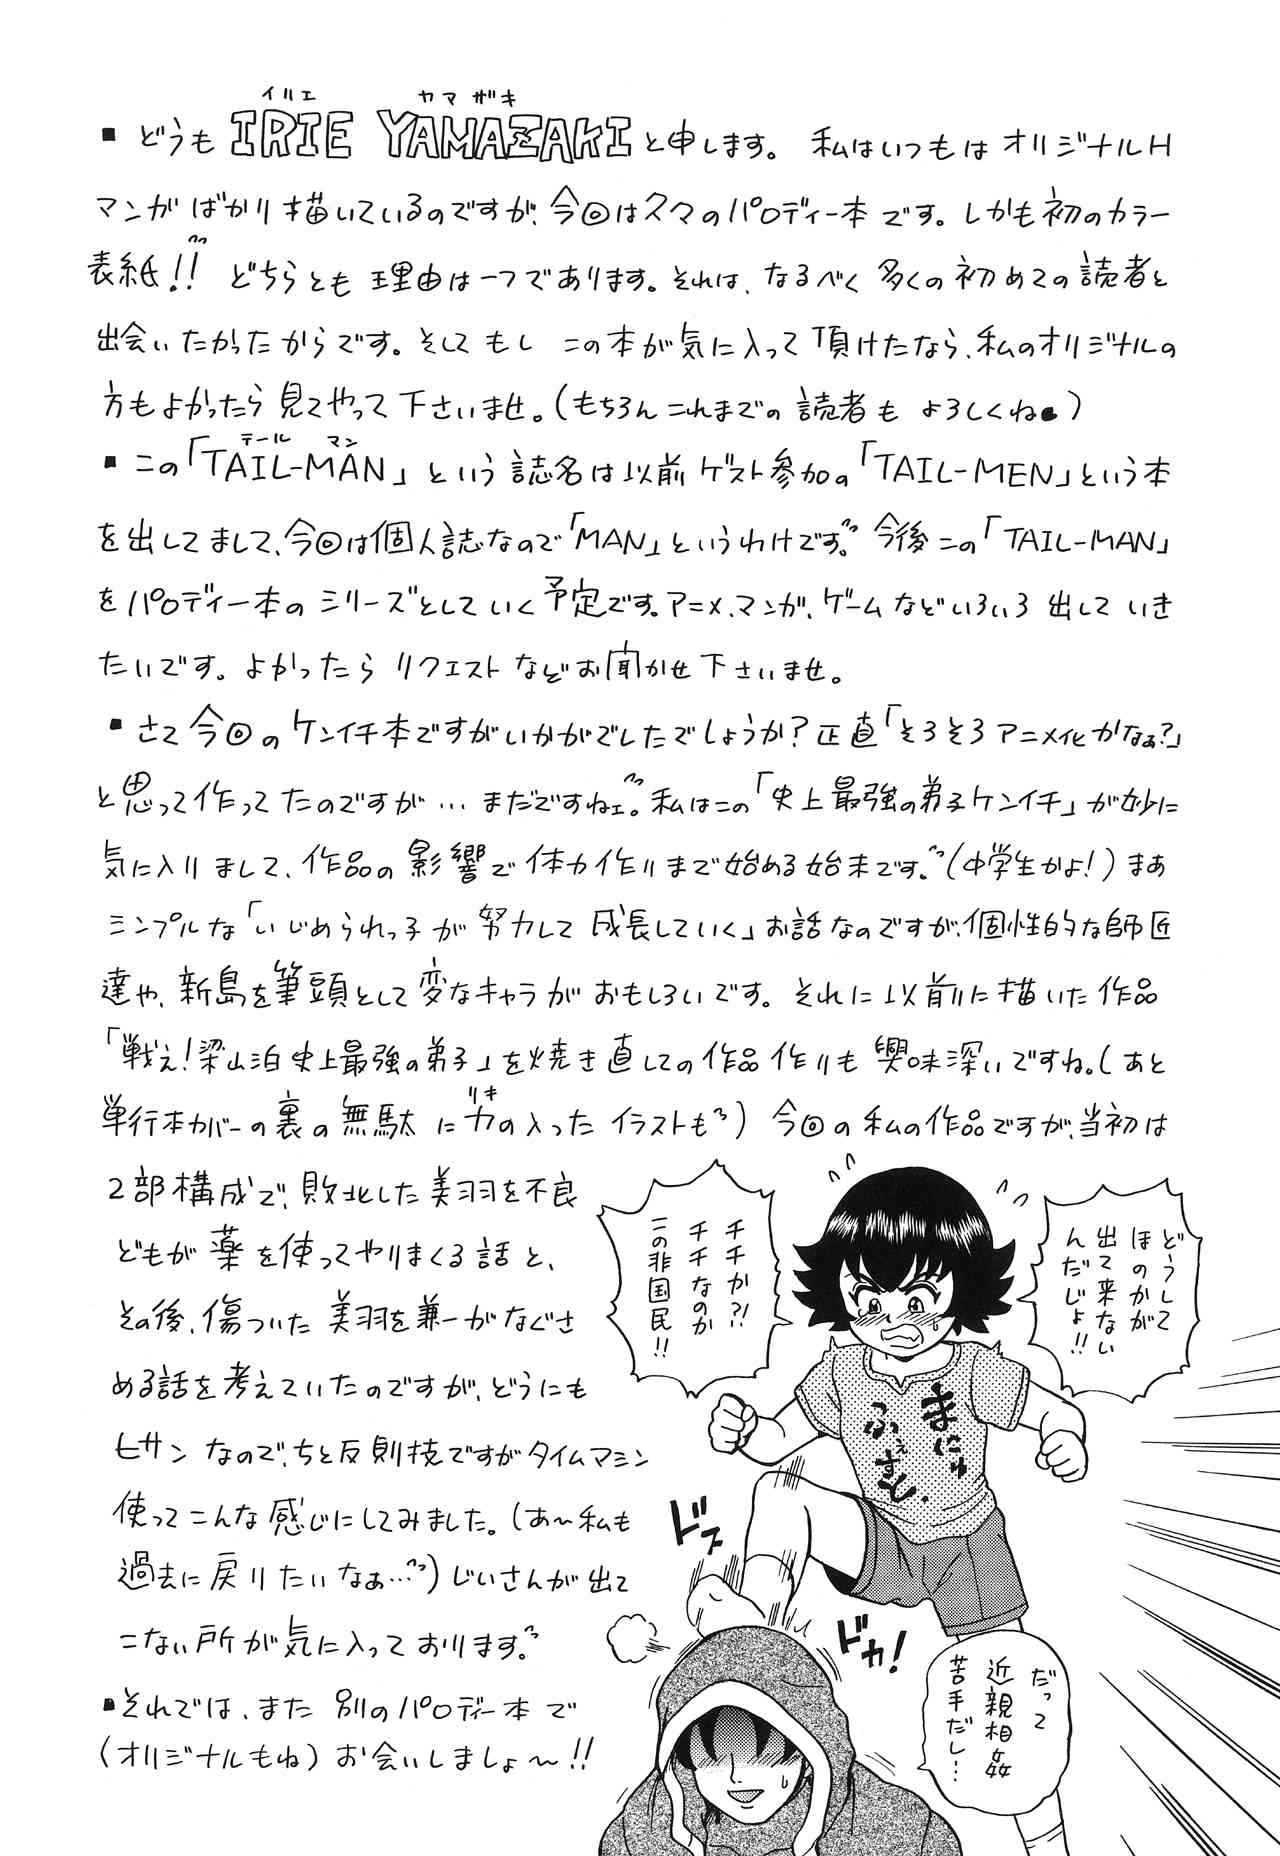 イリエ ヤマザキ
▪ どうも IRIE YAMAZAKI と申します。 私はいつもはオリジナルH
マンガばかり描いているのですが、今回は久々のパロディー本です。しかも初のカラー
表紙!! どちらとも理由は一つであります。それは、なるべく多くの初めての読者と
出会いたかったからです。そしてもし この本が気に入って頂けたなら、私のオリジナルの
方もよかったら見てやって下さいませ。(もちろんこれまでの読者も よろしくね)
テール マン
▪ この「TAIL-MAN」という誌名は以前ゲスト参加の「TAIL-MEN」という本
を出してまして、今回は個人誌なので「MAN」というわけです。今後この「TAIL-MAN」
をパロディー本のシリーズとしていく予定です。アニメ、マンガ、ゲームなどいろいろ出していき
たいです。よかったらリクエストなどお聞かせ下さいませ。
▪ さて今回のケンイチ本ですがいかがでしたでしょうか?正直「そろそろアニメ化かなぁ?」
と思って作ってたのですが…まだですねェ。私はこの「史上最強の弟子ケンイチ」が妙に
気に入りまして、作品の影響で体力作りまで始める始末です。(中学生かよ!)まあ
シンプルな「いじめられっ子が努力して成長していく」お話なのですが、個性的な師匠
達や、新島を筆頭として変なキャラがおもしろいです。それに以前に描いた作品
「戦え!梁山泊史上最強の弟子」を焼き直しての作品作りも興味深いですね。(あと
リキ
単行本カバーの裏の無駄に力の入ったイラストも)今回の私の作品ですが、当初は
2部構成で、敗北した美羽を不良
どもが薬を使ってやりまくる話と、
その後、傷ついた美羽を兼一がなぐさ
める話を考えていたのですが、どうにも
ヒサンなので、ちと反則技ですがタイムマシン
使ってこんな感じにしてみました。(あ〜私も
過去に戻りたいなぁ…)じいさんが出て
こない所が気に入っております。
▪ それでは、また別のパロディー本で
(オリジナルもね)お会いしましょ〜!!
どうして
ほのかが
出て来ない
んだじょ!!
チチか?!
チチなのか
この非国民!!
まにゅ
ふぇすと、
ドス
ドカ!
だって
近親相姦
苦手だし…